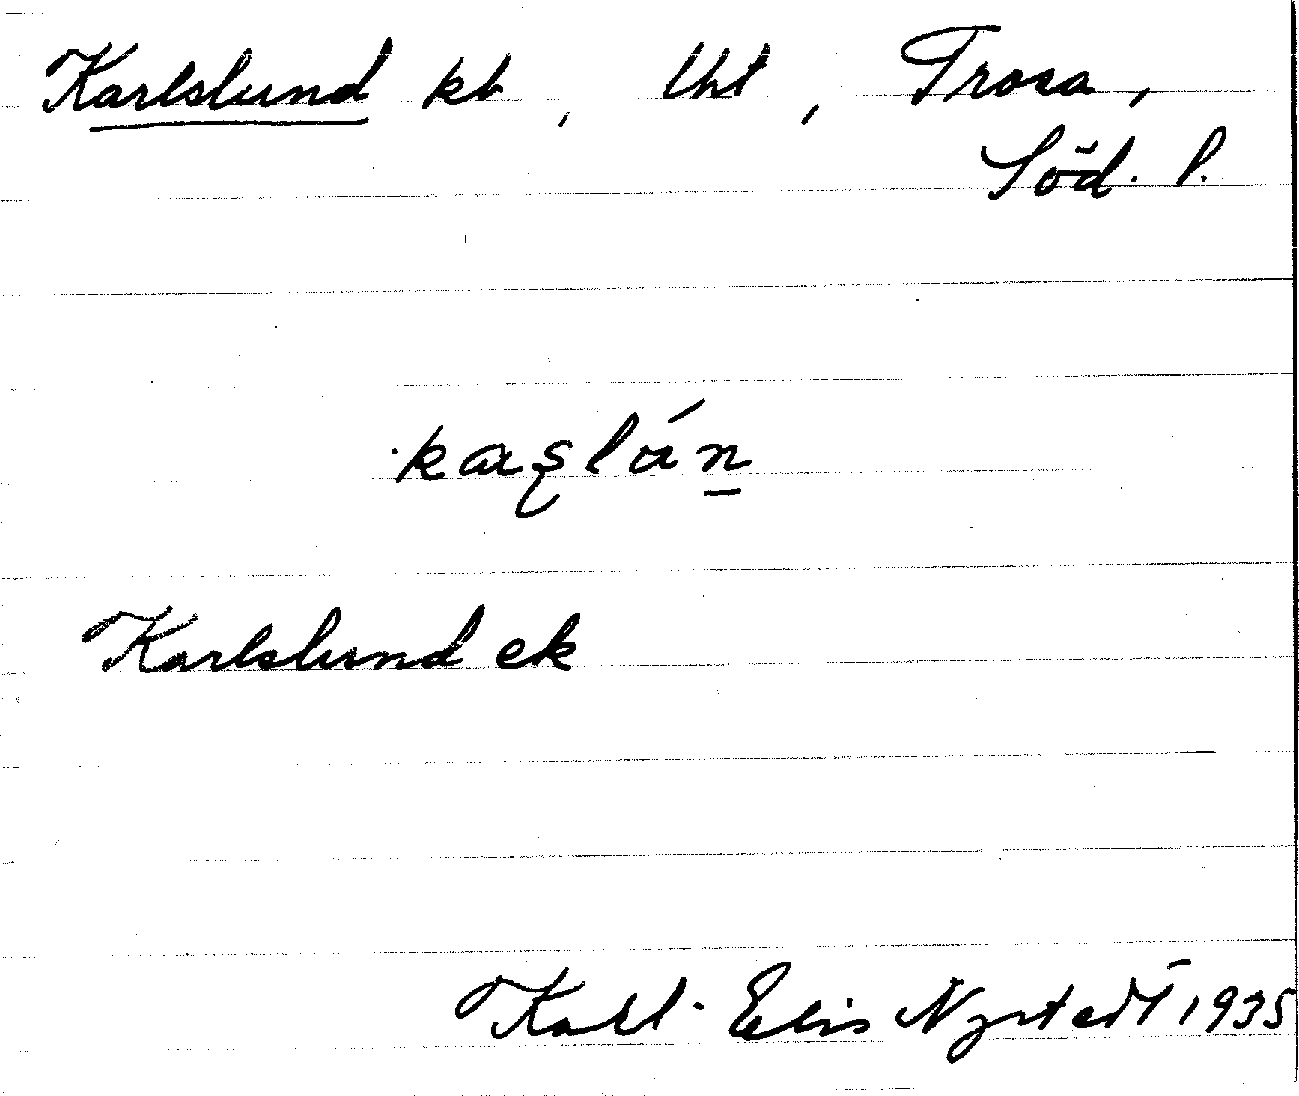 Karlslund kb, lht, Trosa,
Söd. l.
kaşlán
Karlslund ek
Karl-Elis Nystedt 1935